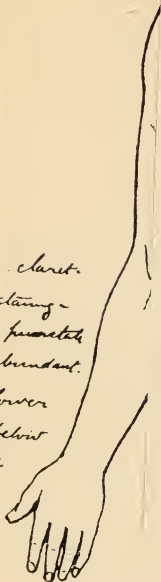 claret-
staing-
punctate
bundant.
lower
below